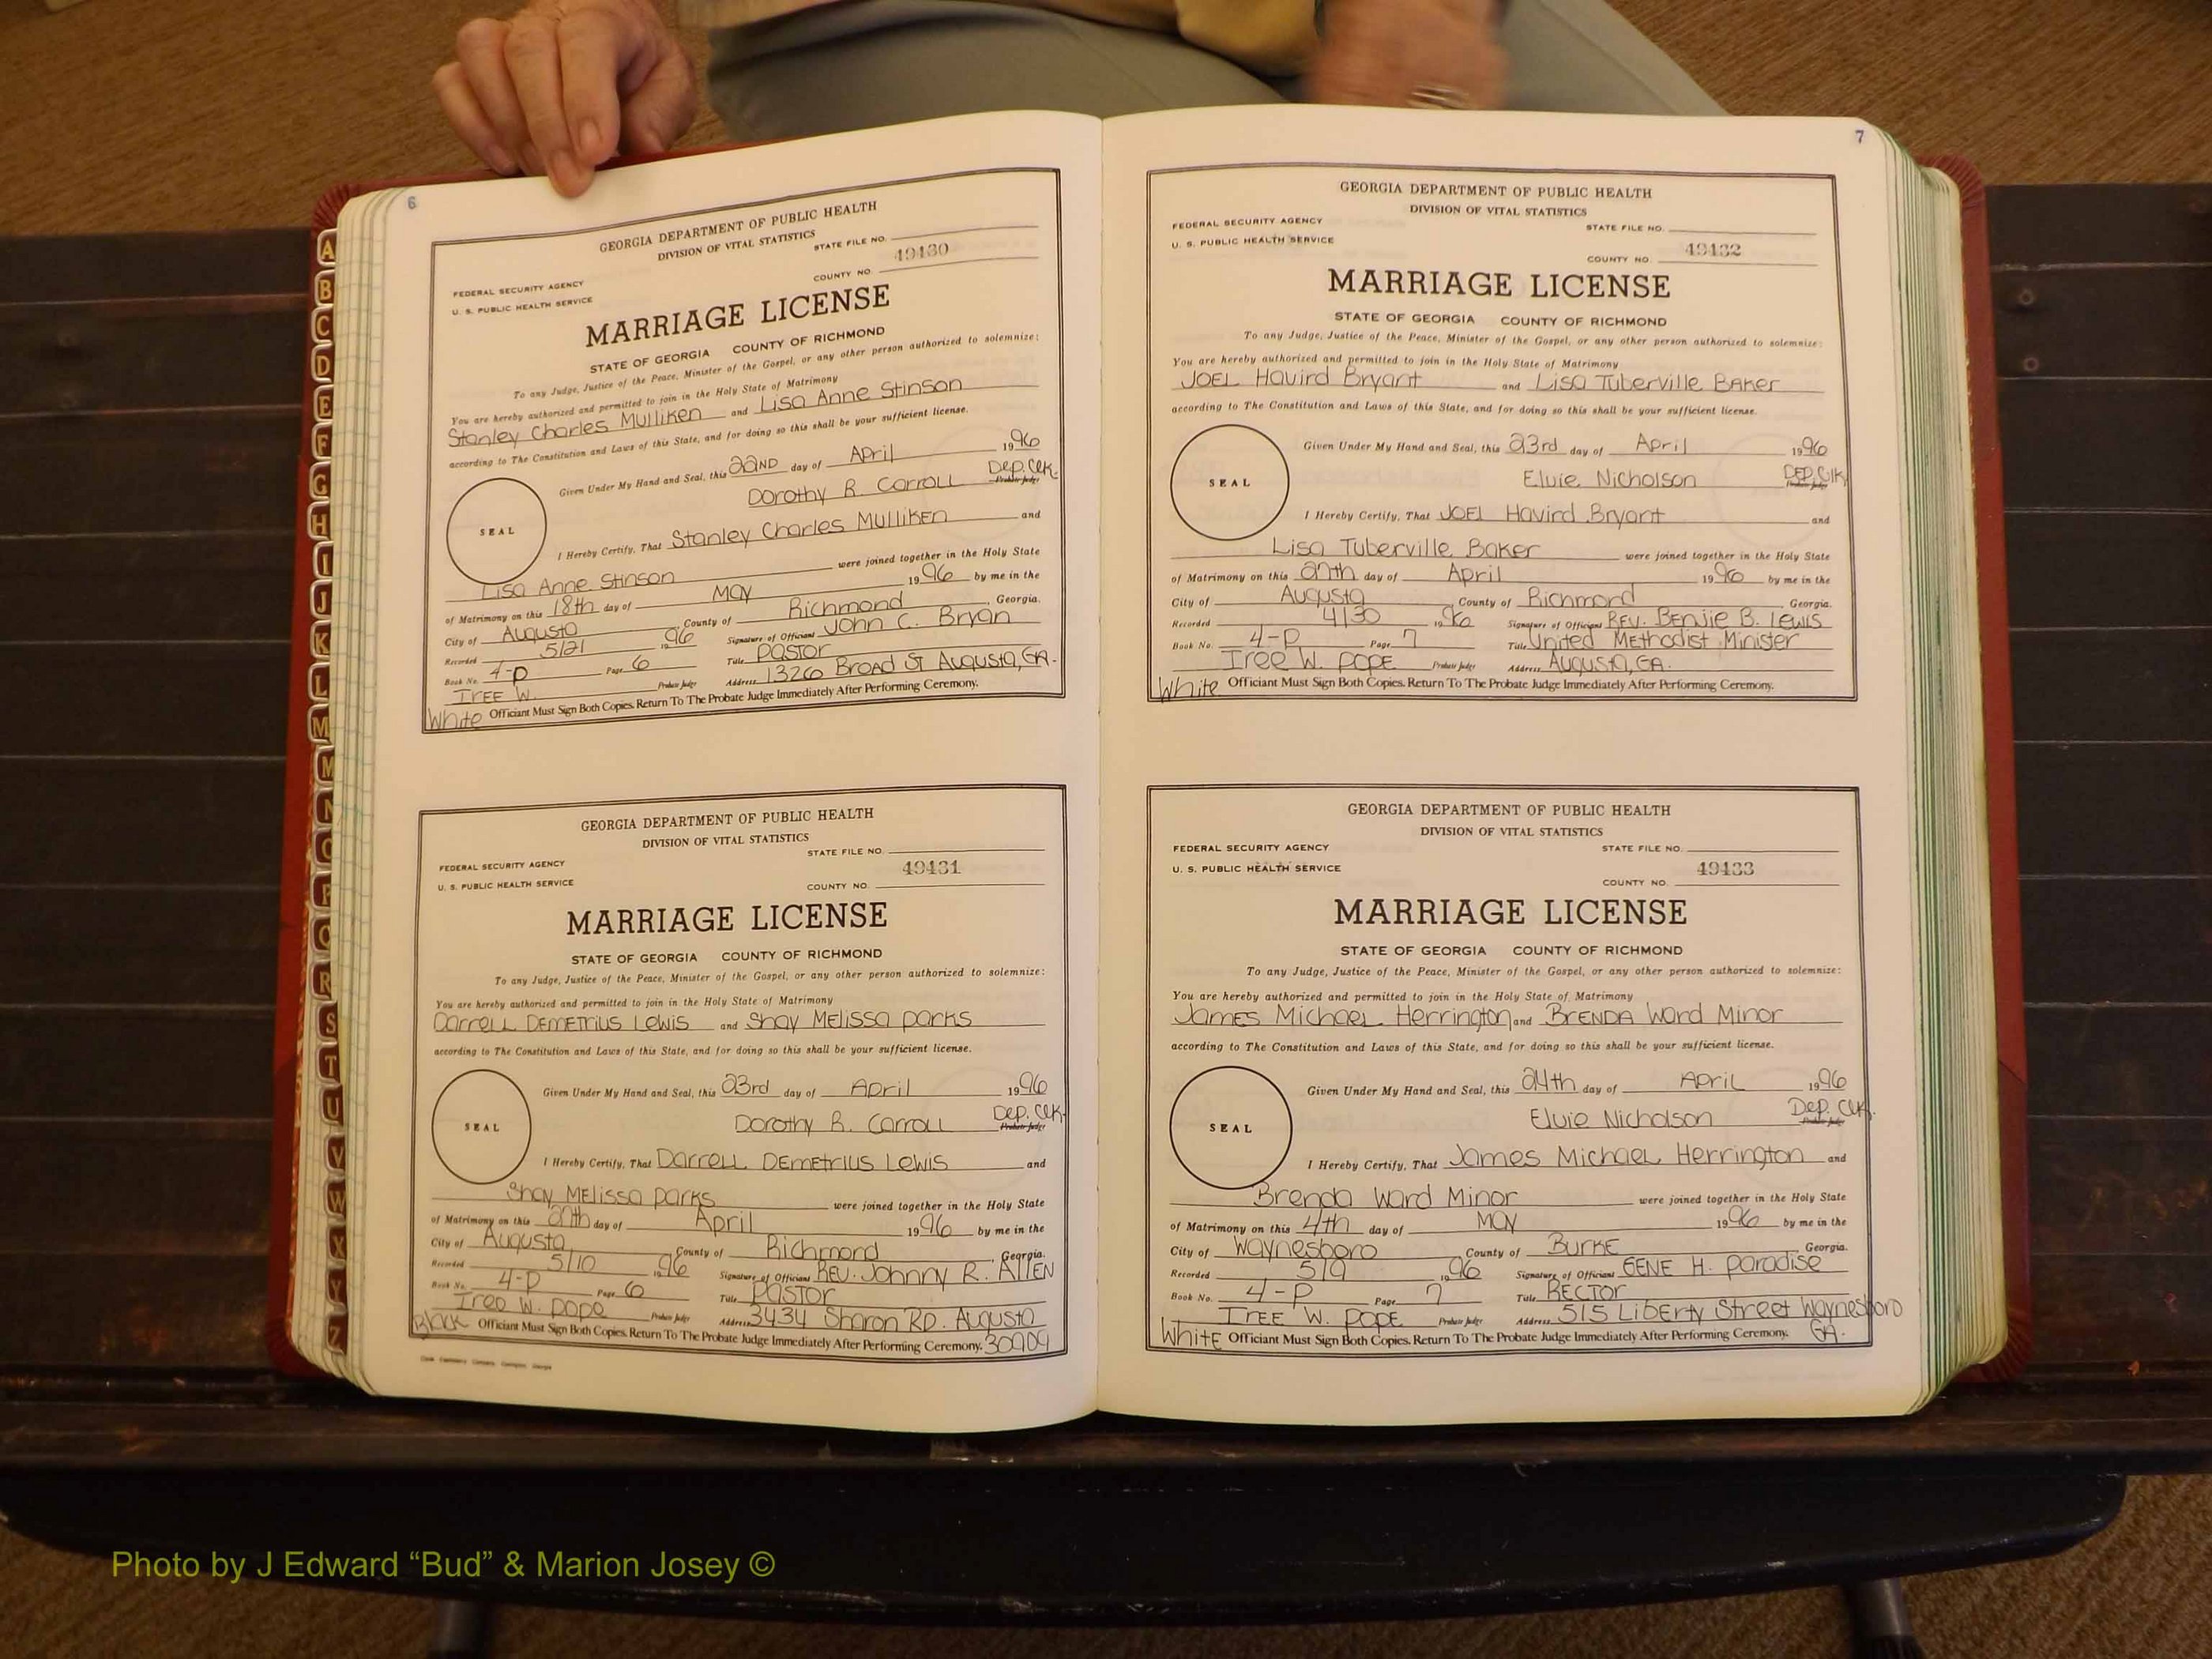 6
GEORGIA DEPARTMENT OF PUBLIC HEALTH
DIVISION OF VITAL STATISTICS
STATE FILE NO.
FEDERAL SECURITY AGENCY
U. S. PUBLIC HEALTH SERVICE
COUNTY NO. 49430
MARRIAGE LICENSE
STATE OF GEORGIA COUNTY OF RICHMOND
To any Judge, Justice of the Peace, Minister of the Gospel, or any other person authorized to solemnize:
You are hereby authorized and permitted to join in the Holy State of Matrimony
Stanley Charles Mulliken and Lisa Anne Stinson
according to The Constitution and Laws of this State, and for doing so this shall be your sufficient license.
Given Under My Hand and Seal, this 22ND day of April 1996
Dorothy R. Carroll Dep. Clk.
Probate Judge
SEAL
I Hereby Certify, That Stanley Charles Mulliken and
Lisa Anne Stinson were joined together in the Holy State
of Matrimony on this 18th day of May 1996 by me in the
City of Augusta County of Richmond Georgia.
Recorded 5/21 1996 Signature of Officiant John C. Bryan
Book No. 4-P Page 6 Title Pastor
Iree W. Probate Judge Address 1326 Broad St Augusta, GA.
White Officiant Must Sign Both Copies. Return To The Probate Judge Immediately After Performing Ceremony.
GEORGIA DEPARTMENT OF PUBLIC HEALTH
DIVISION OF VITAL STATISTICS
STATE FILE NO.
FEDERAL SECURITY AGENCY
U. S. PUBLIC HEALTH SERVICE
COUNTY NO. 49431
MARRIAGE LICENSE
STATE OF GEORGIA COUNTY OF RICHMOND
To any Judge, Justice of the Peace, Minister of the Gospel, or any other person authorized to solemnize:
You are hereby authorized and permitted to join in the Holy State of Matrimony
Darrell Demetrius Lewis and Shay Melissa Parks
according to The Constitution and Laws of this State, and for doing so this shall be your sufficient license.
Given Under My Hand and Seal, this 23rd day of April 1996
Dorothy R. Carroll Dep. Clk.
Probate Judge
SEAL
I Hereby Certify, That Darrell Demetrius Lewis and
Shay Melissa Parks were joined together in the Holy State
of Matrimony on this 27th day of April 1996 by me in the
City of Augusta County of Richmond Georgia.
Recorded 5/10 1996 Signature of Officiant Rev. Johnny R. Allen
Book No. 4-P Page 6 Title Pastor
Iree W. Pope Probate Judge Address 3434 Sharon RD. Augusta
Black Officiant Must Sign Both Copies. Return To The Probate Judge Immediately After Performing Ceremony. 30909
7
GEORGIA DEPARTMENT OF PUBLIC HEALTH
DIVISION OF VITAL STATISTICS
FEDERAL SECURITY AGENCY
STATE FILE NO.
U. S. PUBLIC HEALTH SERVICE
COUNTY NO. 49432
MARRIAGE LICENSE
STATE OF GEORGIA COUNTY OF RICHMOND
To any Judge, Justice of the Peace, Minister of the Gospel, or any other person authorized to solemnize:
You are hereby authorized and permitted to join in the Holy State of Matrimony
Joel Havird Bryant and Lisa Tuberville Baker
according to The Constitution and Laws of this State, and for doing so this shall be your sufficient license.
Given Under My Hand and Seal, this 23rd day of April 1996
Elvie Nicholson Dep. Clk
Probate Judge
SEAL
I Hereby Certify, That Joel Havird Bryant and
Lisa Tuberville Baker were joined together in the Holy State
of Matrimony on this 27th day of April 1996 by me in the
City of Augusta County of Richmond Georgia.
Recorded 4/30 1996 Signature of Officiant Rev. Benjie B. Lewis
Book No. 4-P Page 7 Title United Methodist Minister
Iree W. Pope Probate Judge Address Augusta, GA.
White Officiant Must Sign Both Copies. Return To The Probate Judge Immediately After Performing Ceremony.
GEORGIA DEPARTMENT OF PUBLIC HEALTH
DIVISION OF VITAL STATISTICS
FEDERAL SECURITY AGENCY
STATE FILE NO.
U. S. PUBLIC HEALTH SERVICE
COUNTY NO. 49433
MARRIAGE LICENSE
STATE OF GEORGIA COUNTY OF RICHMOND
To any Judge, Justice of the Peace, Minister of the Gospel, or any other person authorized to solemnize:
You are hereby authorized and permitted to join in the Holy State of Matrimony
James Michael Herrington and Brenda Ward Minor
according to The Constitution and Laws of this State, and for doing so this shall be your sufficient license.
Given Under My Hand and Seal, this 24th day of April 1996
Elvie Nicholson Dep. Clk.
Probate Judge
SEAL
I Hereby Certify, That James Michael Herrington and
Brenda Ward Minor were joined together in the Holy State
of Matrimony on this 4th day of May 1996 by me in the
City of Waynesboro County of Burke Georgia.
Recorded 5/9 1996 Signature of Officiant Gene H. Paradise
Book No. 4-P Page 7 Title Rector
Iree W. Pope Probate Judge Address 515 Liberty Street Waynesboro
White Officiant Must Sign Both Copies. Return To The Probate Judge Immediately After Performing Ceremony. GA.
A
B
C
D
E
F
G
H
I
J
K
L
M
N
O
P
Q
R
S
T
U
V
W
X
Y
Z
Photo by J Edward “Bud” & Marion Josey ©